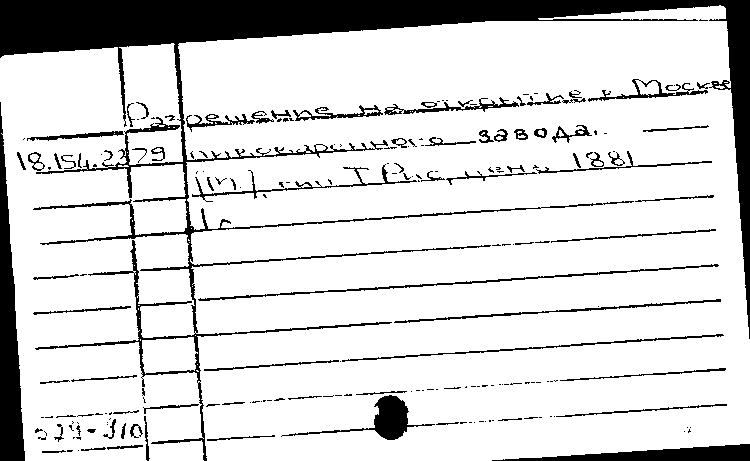 Разрешение на открытие в Москве
18.154.2379 пивоваренного завода.
[М], тип. Т Рис, ценз 1881
1л
529-310